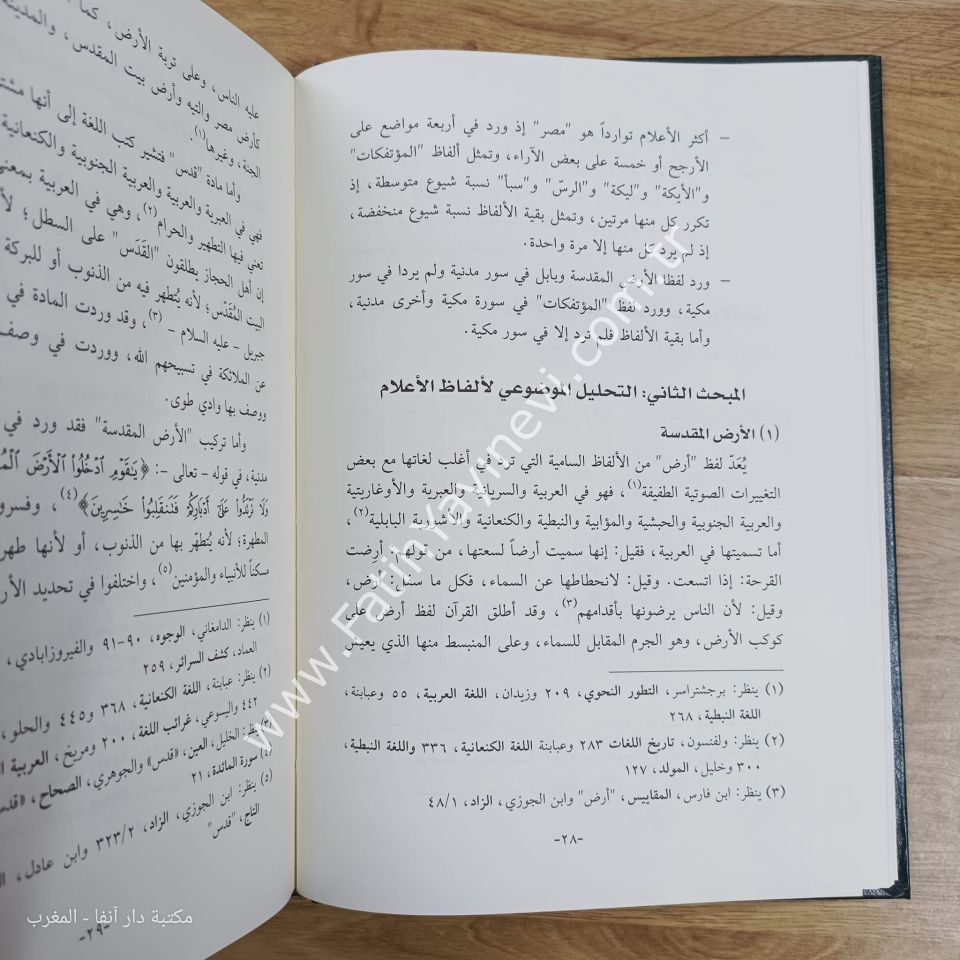 – أكثر الأعلام توارداً هو "مصر" إذ ورد في أربعة مواضع على
الأرجح أو خمسة على بعض الآراء، وتمثل ألفاظ "المؤتفكات"
و"الأيكة" و"ليكة" و"الرسّ" و"سبأ" نسبة شيوع متوسطة، إذ
تكرر كل منها مرتين، وتمثل بقية الألفاظ نسبة شيوع منخفضة،
إذ لم يرد كل منها إلا مرة واحدة.
– ورد لفظا الأرض المقدسة وبابل في سور مدنية ولم يردا في سور
مكية، وورد لفظ "المؤتفكات" في سورة مكية وأخرى مدنية،
وأما بقية الألفاظ فلم ترد إلا في سور مكية.
المبحث الثاني: التحليل الموضوعي لألفاظ الأعلام
(١) الأرض المقدسة
يُعَدّ لفظ "أرض" من الألفاظ السامية التي ترد في أغلب لغاتها مع بعض
التغييرات الصوتية الطفيفة(١)، فهو في العربية والسريانية والعبرية والأوغاريتية
والعربية الجنوبية والحبشية والمؤابية والنبطية والكنعانية والآشورية البابلية(٢)،
أما تسميتها في العربية، فقيل: إنها سميت أرضاً لسعتها، من قولهم: أرِضت
القرحة: إذا اتسعت. وقيل: لانحطاطها عن السماء، فكل ما سفل: أرض،
وقيل: لأن الناس يرضونها بأقدامهم(٣)، وقد أطلق القرآن لفظ أرض على
كوكب الأرض، وهو الجرم المقابل للسماء، وعلى المنبسط منها الذي يعيش
(١) ينظر: برجشتراسر، التطور النحوي، ٢٠٩ وزيدان، اللغة العربية، ٥٥ وعبابنة،
اللغة النبطية، ٢٦٨
(٢) ينظر: ولفنسون، تاريخ اللغات ٢٨٣ وعبابنة اللغة الكنعانية، ٣٣٦ واللغة النبطية،
٣٠٠ وخليل، المولد، ١٢٧
(٣) ينظر: ابن فارس، المقاييس، "أرض" وابن الجوزي، الزاد، ٤٨/١
-٢٨-
عليه الناس، وعلى تربة الأرض، كما
كأرض مصر والتيه وأرض بيت المقدس، والمدينة
الجنة، وغيرها(١).
وأما مادة "قدس" فتشير كتب اللغة إلى أنها
فهي في العبرية والعربية والعربية الجنوبية والكنعانية
تعني فيها التطهير والحرام(٢)، وهي في العربية بمعنى
إن أهل الحجاز يطلقون "القَدَس" على السطل؛
البيت المُقَدّس؛ لأنه يُتطهر فيه من الذنوب أو للبركة
جبريل – عليه السلام – (٣)، وقد وردت المادة في
عن الملائكة في تسبيحهم الله، ووردت في وصف
ووصف بها وادي طوى.
وأما تركيب "الأرض المقدسة" فقد ورد في
مدنية، في قوله – تعالى –: ﴿يَٰقَوْمِ ٱدْخُلُوا۟ ٱلْأَرْضَ
وَلَا تَرْتَدُّوا۟ عَلَىٰٓ أَدْبَارِكُمْ فَتَنقَلِبُوا۟ خَٰسِرِينَ﴾(٤)، وفسروا
المطهرة؛ لأنه يُتطهّر بها من الذنوب، أو لأنها
مسكناً للأنبياء والمؤمنين(٥)، واختلفوا في تحديد
(١) ينظر: الدامغاني، الوجوه، ٩٠-٩١ والفيروزابادي،
العماد، كشف السرائر، ٢٥٩
(٢) ينظر: عبابنة، اللغة الكنعانية، ٣٦٨ و٤٤٥ والحلو،
٤٤٢ واليسوعي، غرائب اللغة، ٢٠٠ ومريخ، العربية
(٣) ينظر: الخليل، العين، «قدس» والجوهري، الصحاح،
(٤) سورة المائدة، ٢١
(٥) ينظر: ابن الجوزي، الزاد، ٣٢٣/٢ وابن عادل،
التاج، "قدس"
-٢٩-
www.FatihYayinevi.com.tr
مكتبة دار آنفا - المغرب